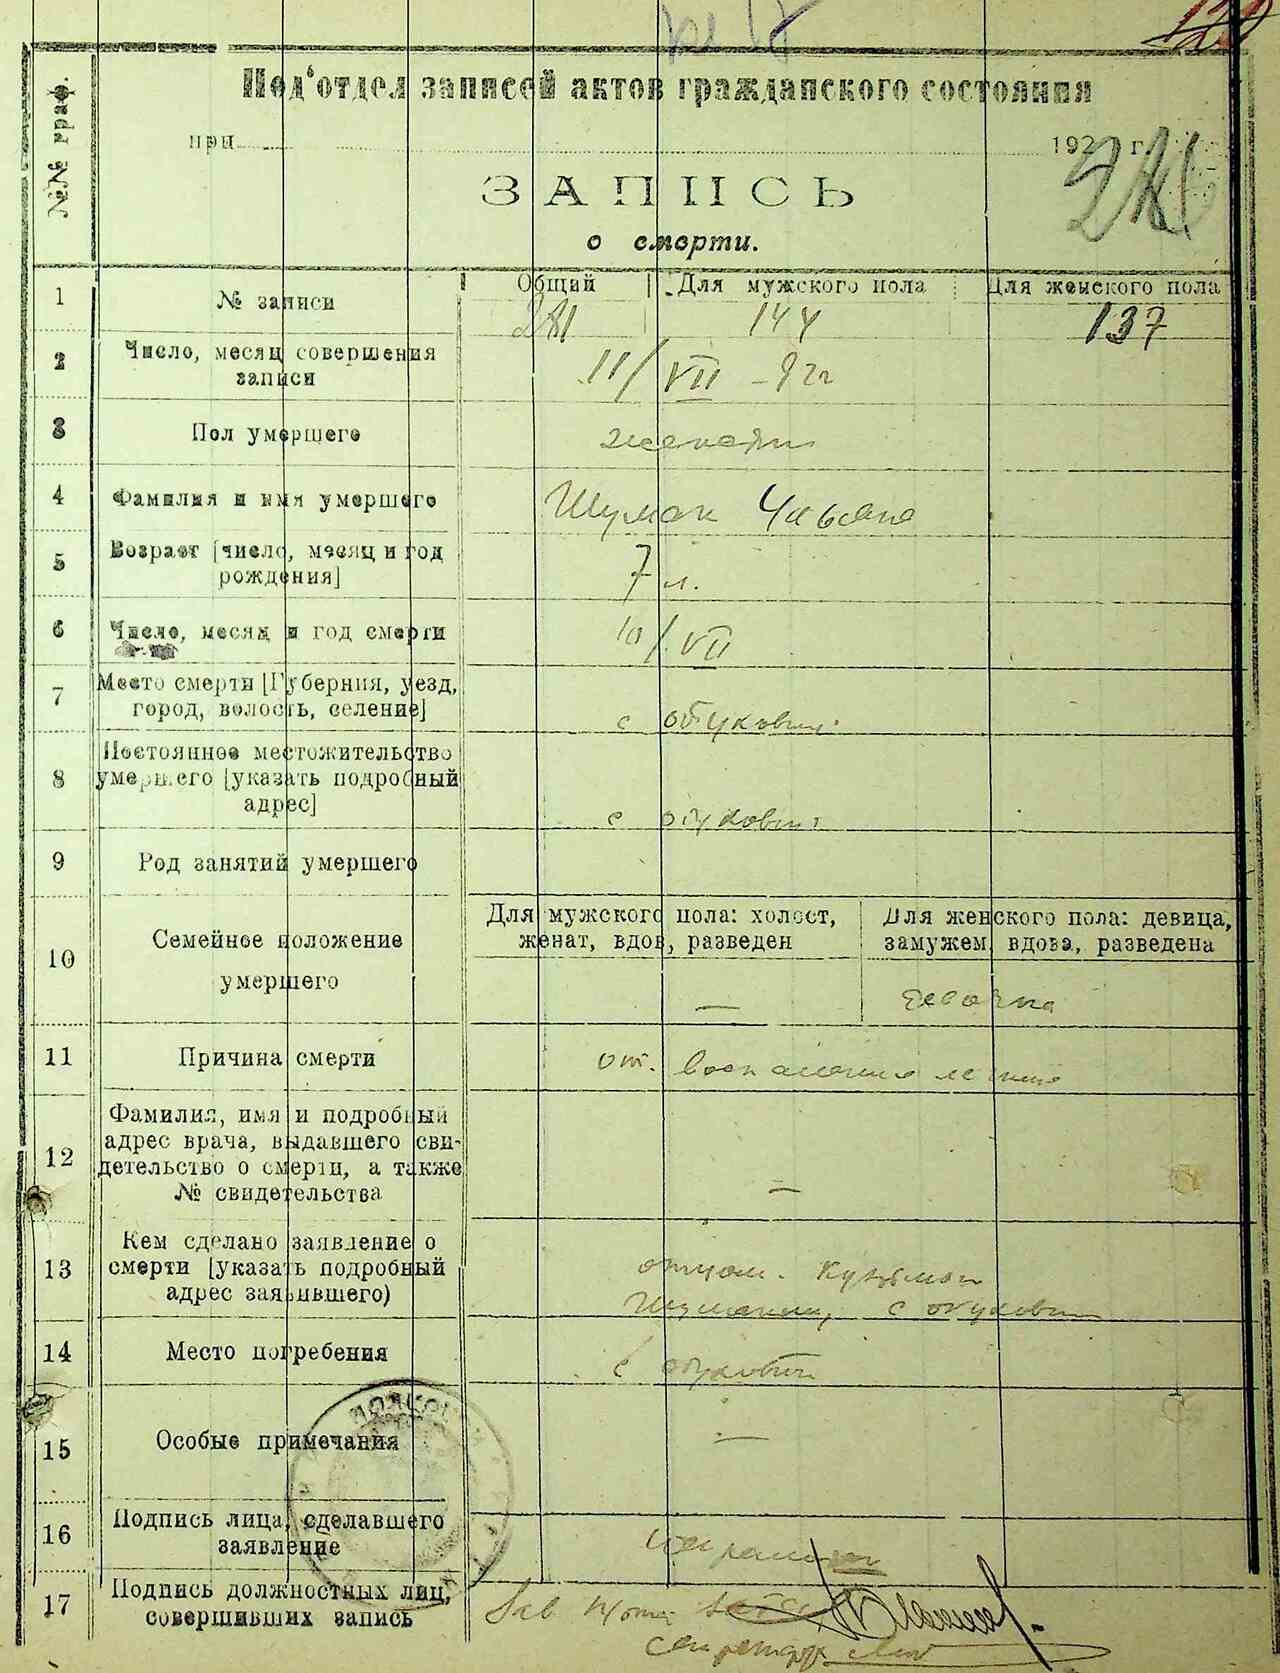 Под'отдел записей актов гражданского состояния
при 192 г.
ЗАПИСЬ
о смерти.
№№ граф.
Общий Для мужского пола Для женского пола
1 № записи 281 144 137
2 Число, месяц совершения
записи 11/VII
3 Пол умершего
4 Фамилия и имя умершего Шуман
5 Возраст [число, месяц и год
рождения] 7 л.
6 Число, месяц и год смерти 10/VII
7 Место смерти [Губерния, уезд,
город, волость, селение] с
8 Постоянное местожительство
умершего [указать подробный
адрес] с
9 Род занятий умершего
Для мужского пола: холост, Для женского пола: девица,
женат, вдов, разведен замужем, вдова, разведена
10 Семейное положение
умершего — девочка
11 Причина смерти от. воспаления
12 Фамилия, имя и подробный
адрес врача, выдавшего сви-
детельство о смерти, а также
№ свидетельства —
13 Кем сделано заявление о
смерти [указать подробный
адрес заявившего) отцом.
с
14 Место погребения с
15 Особые примечания —
16 Подпись лица, сделавшего
заявление
17 Подпись должностных лиц,
совершивших запись Зав
секретарь